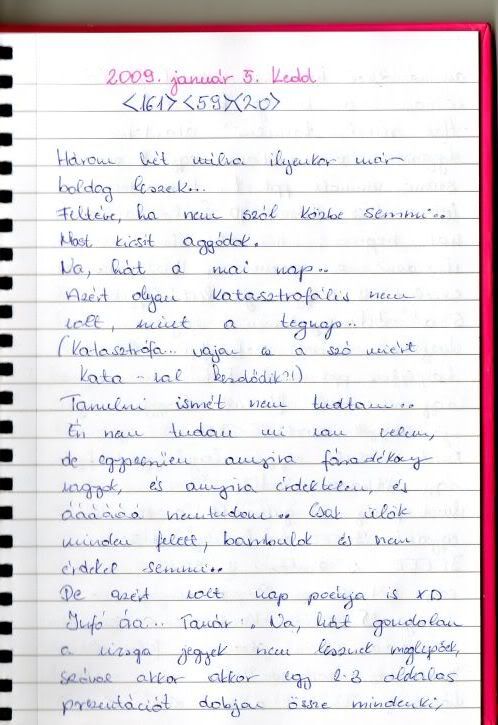 2009. január 5. Kedd
<161> <59> <20>
Három hét múlva ilyenkor már
boldog leszek...
Feltéve, ha nem szól közbe semmi..
Most kicsit aggódok.
Na, hát a mai nap..
Azért olyan katasztrofális nem
volt, mint a tegnap..
(Katasztrófa.. vajon ez a szó miért
Kata-val kezdődik?!)
Tanulni ismét nem tudtam..
Én nem tudom mi van velem,
de egyszerűen annyira fáradékony
vagyok, és annyira érdektelen, és
áááááá nemtudom.. Csak ülök
minden felett, bambulok és nem
érdekel semmi..
De azért volt nap poénja is XD
Infó óra... Tanár: Na, hát gondolom
a vizsga jegyek nem lesznek meglepőek,
szóval akkor akkor egy 2-3 oldalas
prezentációt dobjon össze mindenki,